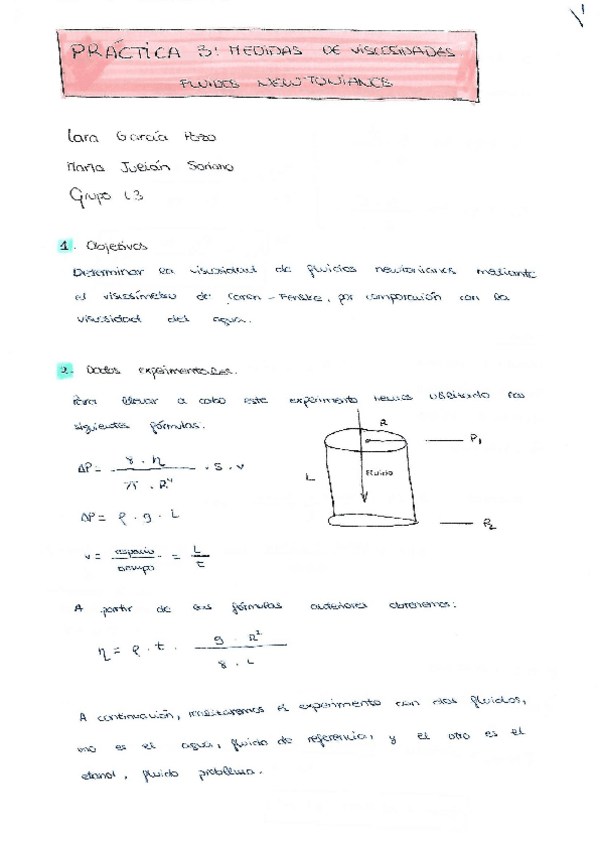 PRÁCTICA 3: MEDIDAS DE VISCOSIDADES
FLUIDOS NEWTONIANOS
Lara García Pozo
María Julián Soriano
Grupo L3
1. Objetivos
Determinar la viscosidad de fluidos newtonianos mediante
el viscosímetro de Canon-Fenske, por comparación con la
viscosidad del agua.
2. Datos experimentales.
Para llevar a cabo este experimento hemos utilizado las
siguientes fórmulas:
ΔP = 8 · η / π · R⁴ · S · v
ΔP = ρ · g · L
v = espacio / tiempo = L / t
R
P₁
L
Fluido
P₂
A partir de las fórmulas anteriores obtenemos:
η = ρ · t · g · R² / 8 · L
A continuación, realizaremos el experimento con dos fluidos,
uno es el agua, fluido de referencia, y el otro es el
etanol, fluido problema.